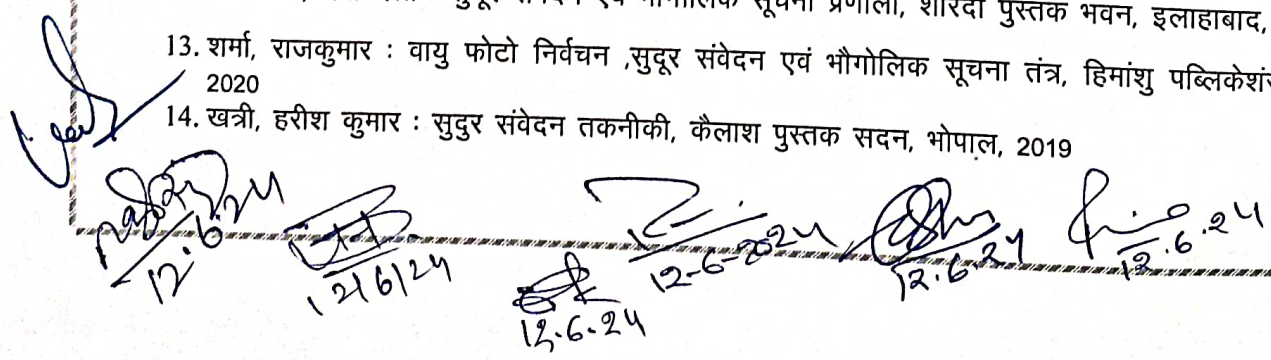 सूचना प्रणाली, शारदा पुस्तक भवन, इलाहाबाद,
13. शर्मा, राजकुमार : वायु फोटो निर्वचन ,सुदूर संवेदन एवं भौगोलिक सूचना तंत्र, हिमांशु पब्लिकेशंस
2020
14. खत्री, हरीश कुमार : सुदुर संवेदन तकनीकी, कैलाश पुस्तक सदन, भोपाल, 2019
12.6.24
12/6/24
12.6.24
12-6-2024
12.6.24
12.6.24